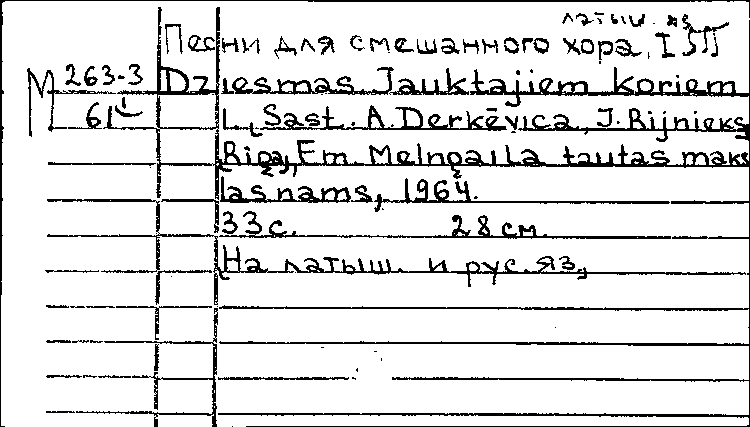 латыш. яз
Песни для смешанного хора, I
М 263-3 Dziesmas Jauktajiem Koriem
61 I. Sast. A. Derkēviča, J. Rijnieks
Riga, Em. Melngaiļa tautas mak
las nams, 1964.
33 с. 28 см.
На латыш. и рус. яз,